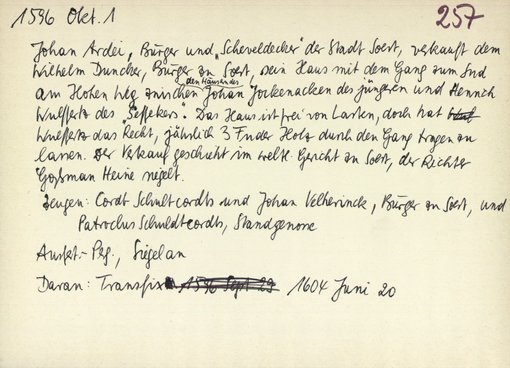 1596 Okt. 1
257
Johan Ardei, Bürger und "Scheveldecker" der Stadt Soest, verkauft dem
Wilhelm Duncker, Bürger zu Soest, sein Haus mit dem Gang zum Sud
den Häusern des
am Hohen Weg zwischen Johan Jockenacken des jüngeren und Henrich
Wulfferts des "Seffekers". Das Haus ist frei von Lasten, doch hat
Wulffert das Recht, jährlich 3 Fuder Holz durch den Gang tragen zu
lassen. Der Verkauf geschieht im weltl. Gericht zu Soest, der Richter
Goßman Heine siegelt.
Zeugen: Cordt Schultcordts und Johan Velherinck, Bürger zu Soest, und
Patroclus Schuldtcordts, Standgenose
Ausf.- Pg., Siegel an
Daran: Transfix 1596 Sept 29 1604 Juni 20